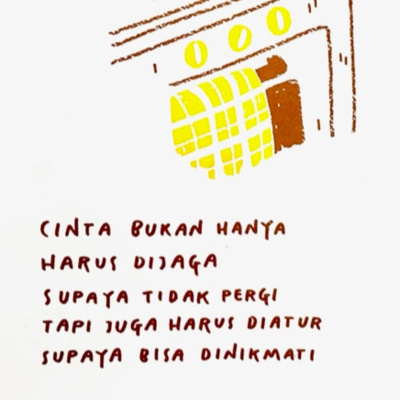 CINTA BUKAN HANYA
HARUS DIJAGA
SUPAYA TIDAK PERGI
TAPI JUGA HARUS DIATUR
SUPAYA BISA DINIKMATI